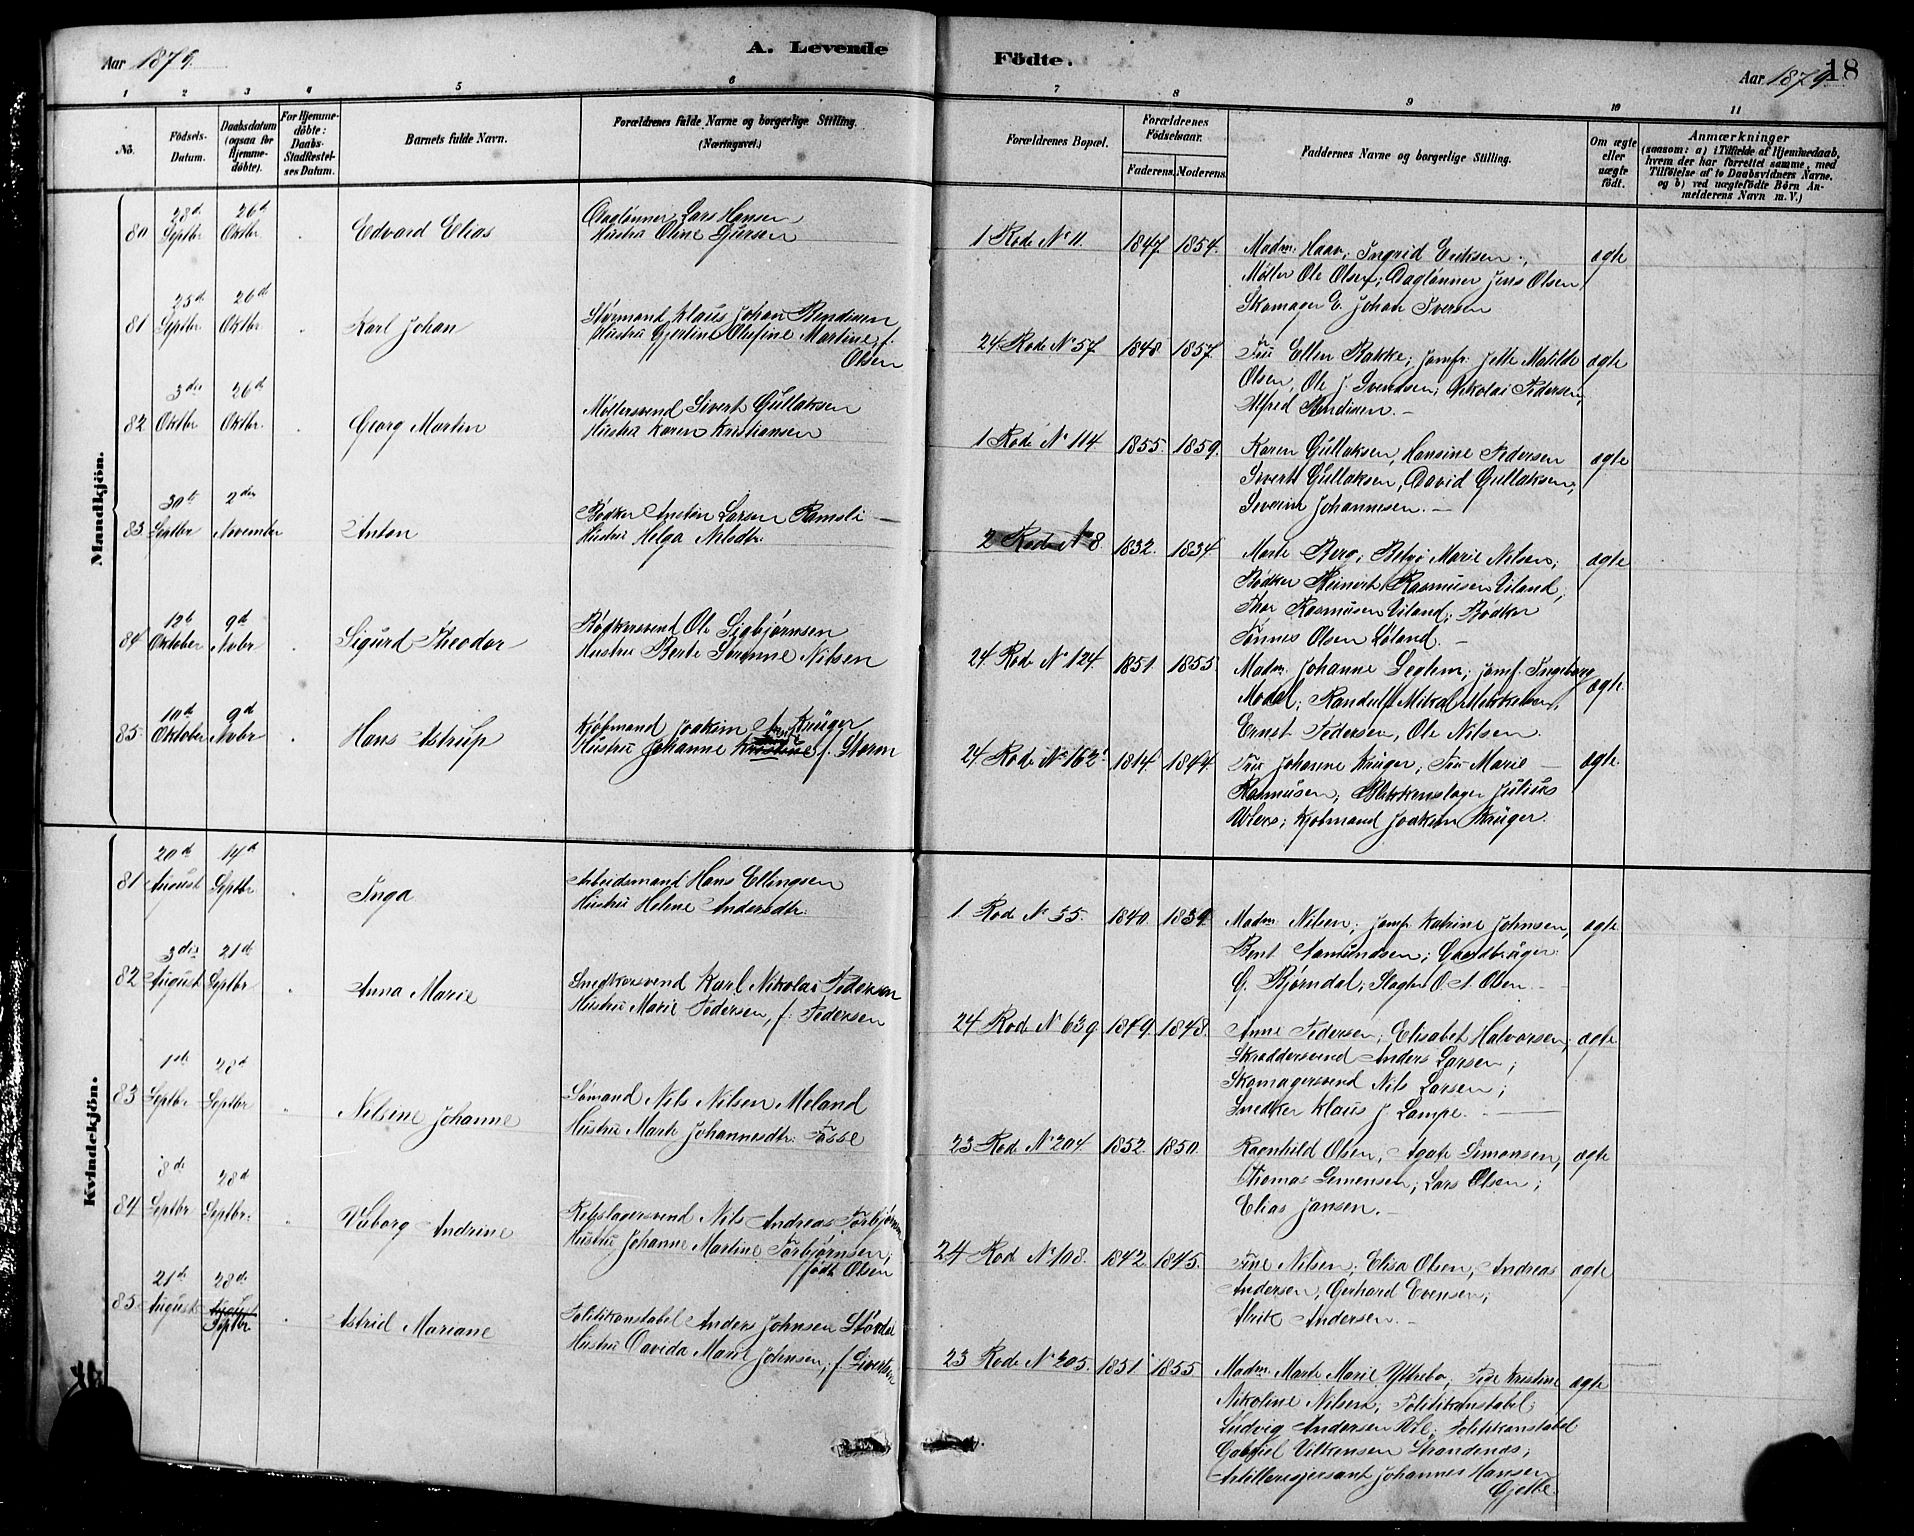 Aar 1879.
A. Levende
Födte.
Aar 1879
18
1 2 3 4 5 6 7 8 9 10 11
No.
Födsels-Datum.
Daabsdatum (ogsaa for Hjemmedöbte).
For Hjemmedöbte: Daabs-Stadfæstelses Datum.
Barnets fulde Navn.
Forældrenes fulde Navne og borgerlige Stilling.
(Næringsvei.)
Forældrenes Bopæl.
Forældrenes Födselsaar.
Faderens. Moderens.
Faddernes Navne og borgerlige Stilling.
Om ægte eller uægte födt.
Anmærkninger
(saasom: a) i Tilfælde af Hjemmedaab,
hvem der har forrettet samme, med
Tilföielse af to Daabsvidners Navne.
og b) ved uægtefödte Börn An-
melderens Navn m. V.)
Mandkjön.
80 28d Septbr 26d Oktbr Edvard Elias
Daglønner Lars Hansen
Hustru Oline
1 Rode No 11. 1847. 1854.
Madm. Haav, Ingrid Eriksen,
Møller Ole Olsen; Daglønner Jens Olsen
Skomager E. Johan Iversen
ægte
81 25d Septbr 26d Oktbr Karl Johan
Styrmand Klaus Johan Bendixen
Hustru Gjertine Olufine Martine, f.
Olsen
24 Rode No 57. 1848 1857.
Fru Ellen Bakke; Jomfr. Jette Matilde
Olsen, Ole J. Svendsen; Nikolai Pedersen,
Alfred Bendixen.
ægte
82 3die Oktbr 26d Oktbr. Georg Martin
Møllersvend Sivert Gullaksen
Hustru Karen Kristiansen
1 Rode No 114. 1855. 1859.
Karen Gullaksen, Hansine Pedersen
Sivert Gullaksen, David Gullaksen,
Severin Johannesen.
ægte
83 30te Septbr 2den November Anton
Bødker Anston Larsen Ramsli
Hustru Helga Nilsdtr.
2 Rode No 8. 1832. 1834.
Marte Berg, Marie Nilsen,
Bødker Reinert Rasmusen Uiland,
Thor Rasmusen Uiland; Bødker
Tønnes Olsen Løland.
ægte
84 12te Oktober 9d Novbr Sigurd Theodor
Bødkersvend Ole Sigbjørnsen
Hustru Berte Nilsen
24 Rode No 124. 1851. 1855.
Madm. Johanne; Jomf. Ingeborg
Mikal Mikkelsen,
Ernst Pedersen, Ole Nilsen.
ægte
85. 10d Oktober 9d Novbr Hans Astrup
Kjøbmand Joakim Krüger
Hustru Johanne f. Storm
24 Rode No 162. 1814. 1844.
Fru Johanne Krüger; Fru Marie
Rasmusen; Blikkenslager Julius
Kjøbmand Joakim Krüger.
ægte
Kvindekjön.
81 20d August 14d Septbr Inga
Arbeidsmand Hans Ellingsen
Hustru Helene Andersdtr.
1 Rode No 55. 1840. 1839.
Madm. Nilsen; Jomfr. Katrine Johnsen,
Bent Aamundsen; Gaardbruger
G. Bjørndal; Slagter O. A. Olsen
ægte
82 3die August 21d Septbr Anna Marie
Snedkersvend Karl Nikolai Pedersen
Hustru Marie Pedersen, f. Pedersen
24 Rode No 639 1849. 1848.
Anne Pedersen; Elisabet Halvorsen,
Skræddersvend Anders Larsen;
Skomagersvend Nils Larsen;
Snedker Klaus J. Lampe.
ægte
83 1ste Septbr 28d Septbr Nilsine Johanne
Sømand Nils Nilsen Meland
Hustru Marte Johannesdtr. Fosse
23 Rode No 204. 1852. 1850.
Ragnhild Olsen, Agate Simonsen,
Thomas Simensen; Lars Olsen;
Elias Jansen.
ægte
84 8de Septbr 28d Septbr. Viborg Andrine
Rebslagersvend Nils Andreas Torbjørnsen
Hustru Johanne Martine Torbjørnsen,
født Olsen
24 Rode No 108. 1842. 1845.
Tine Nilsen, Elisa Olsen, Andreas
Andersen, Gerhard Evensen;
Ulrik Andersen.
ægte
85. 21de August 28de Septbr Astrid Mariane
Politikonstabel Anders Johnsen Størdal
Hustru Davida Marie Johnsen, f. Sivertsen
23 Rode No 205. 1851 1855
Madm. Marte Marie Yttrebø, Kristine
Nikoline Nilsen; Politikonstabel
Ludvig Andersen; Politikonstabel
Gabriel Vilkensen Strandenæs;
Artillerisjersant Johannes Hansen
Gjelle.
ægte